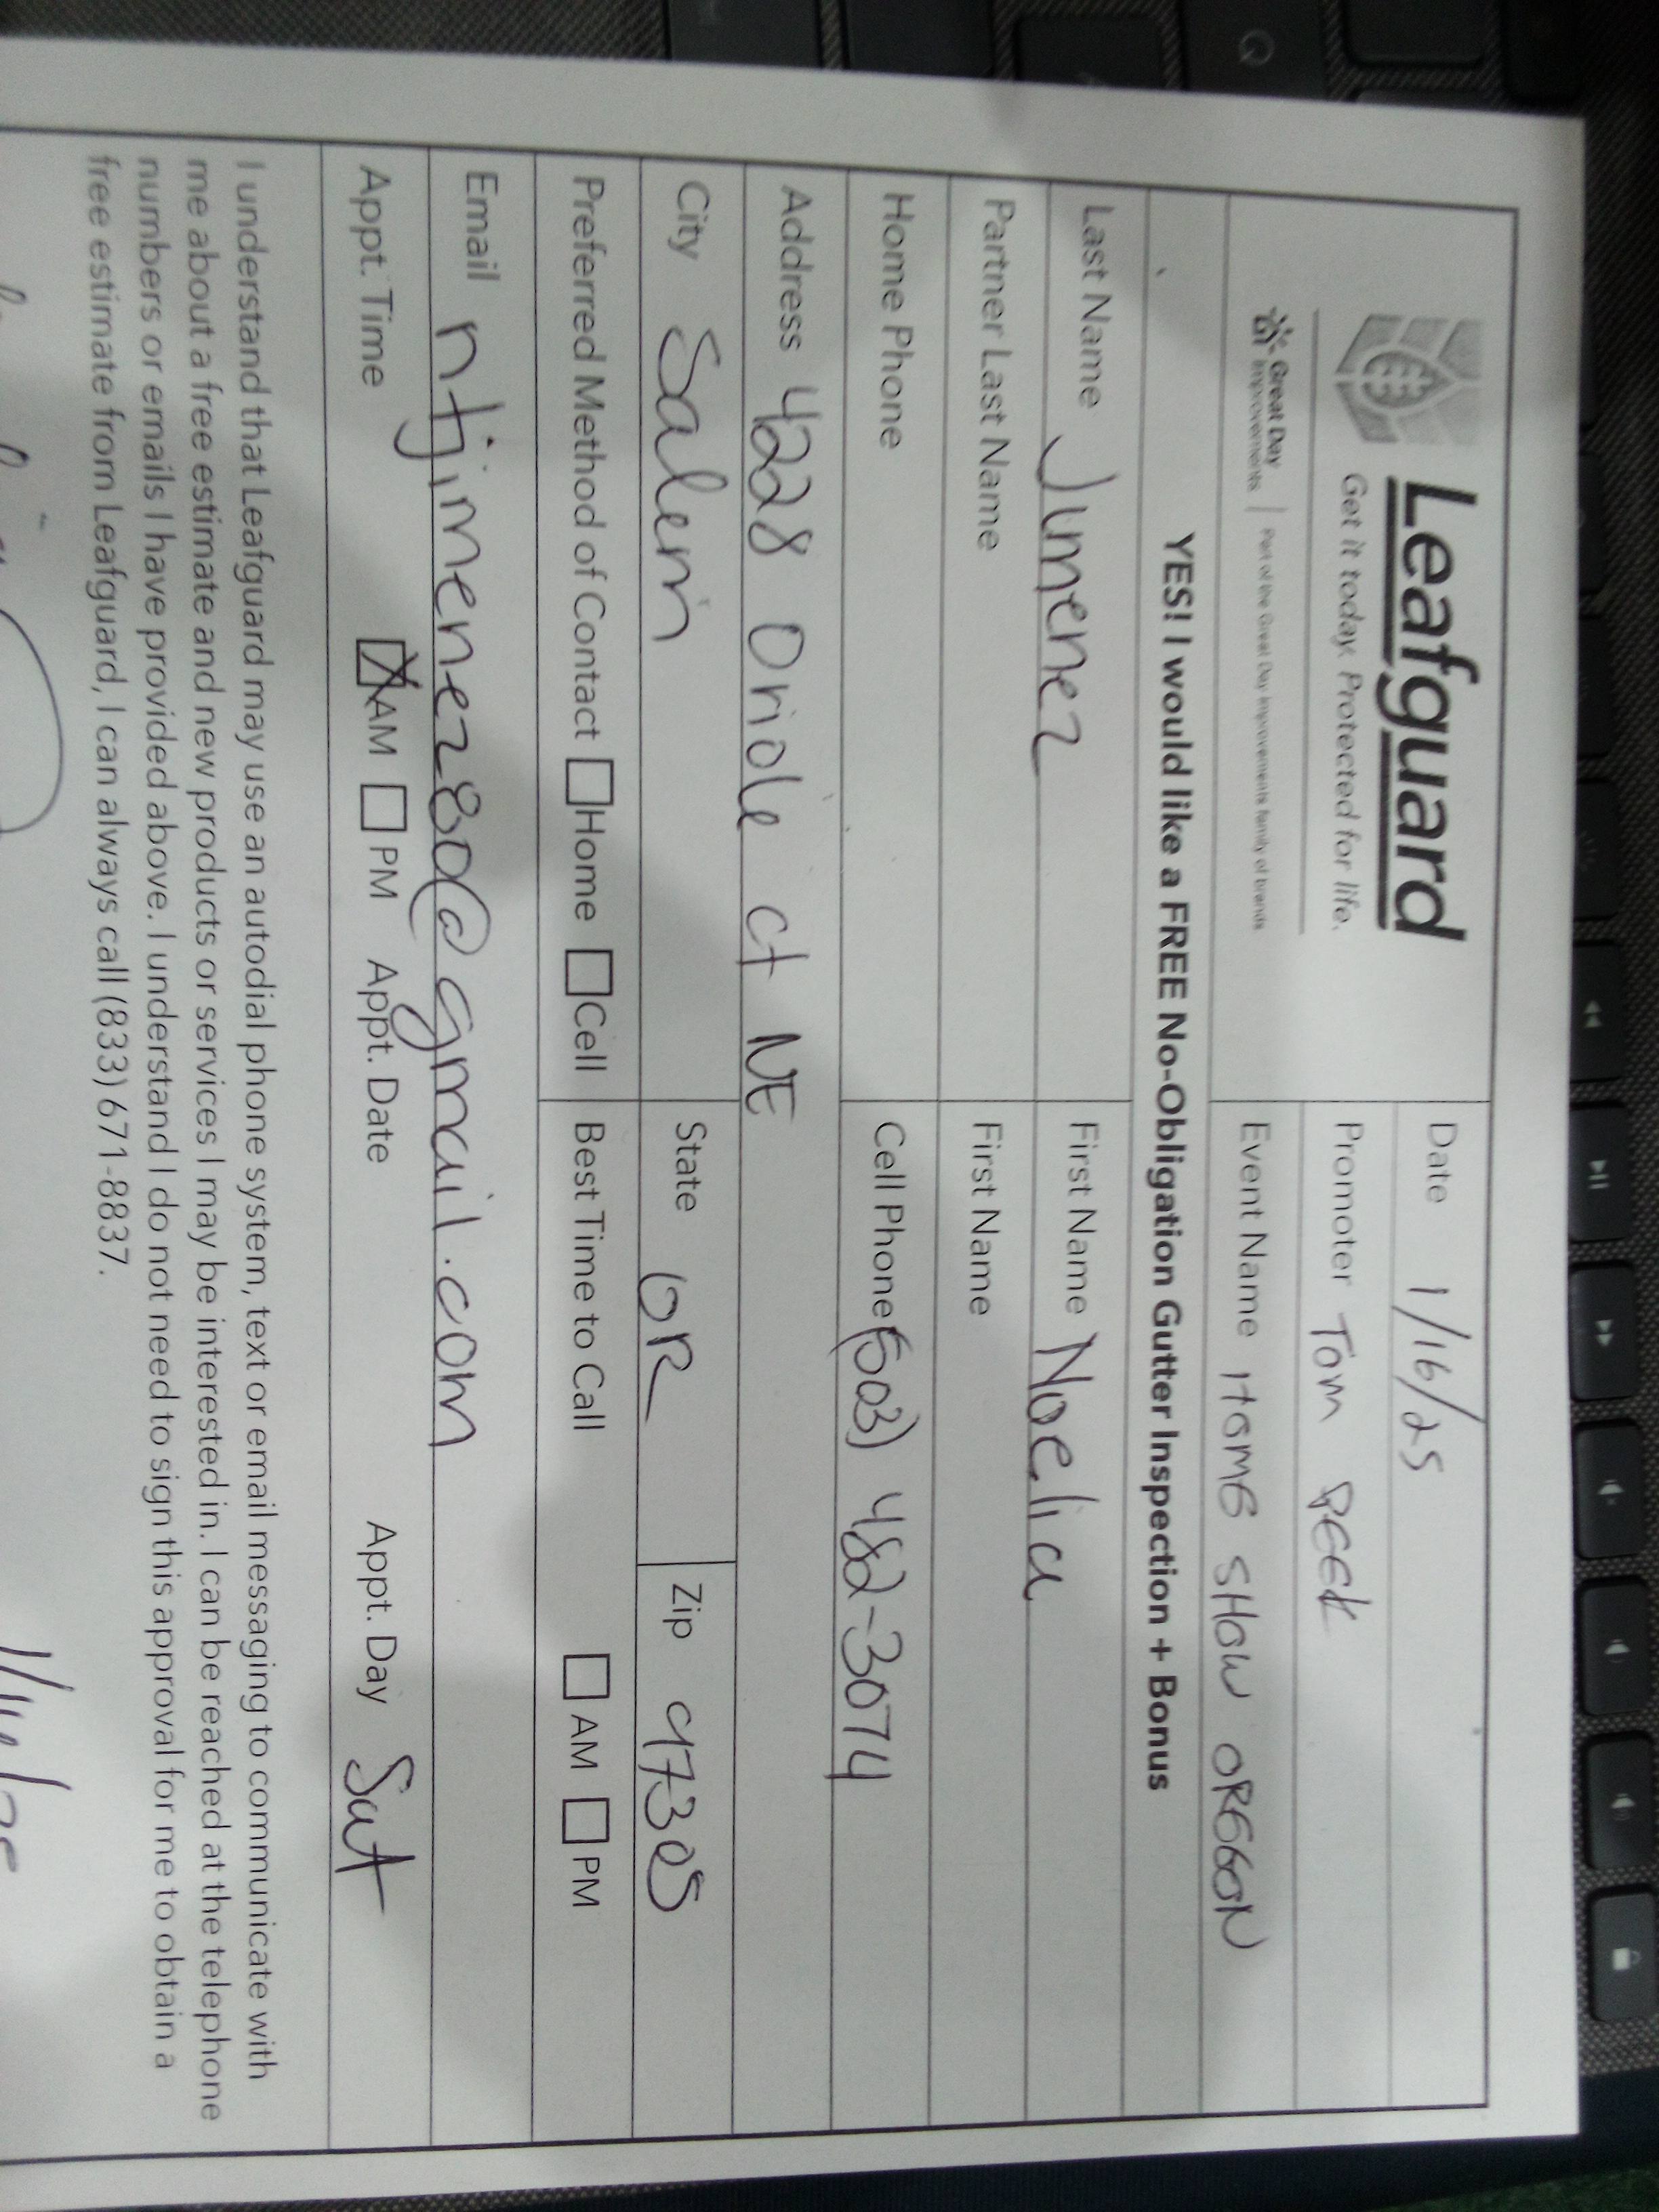 Leafguard
Get it today. Protected for life.
Great Day Improvements | Part of the Great Day Improvements family of brands
Date 1/16/25
Promoter Tom PEEK
Event Name HOME SHOW OREGON
YES! I would like a FREE No-Obligation Gutter Inspection + Bonus
Last Name Jimenez First Name Noelia
Partner Last Name First Name
Home Phone Cell Phone (503) 482-3074
Address 4228 Oriole ct NE
City Salem State OR Zip 97305
Preferred Method of Contact Home Cell Best Time to Call AM PM
Email ntjimenez80@gmail.com
Appt. Time X AM PM Appt. Date Appt. Day Sat
I understand that Leafguard may use an autodial phone system, text or email messaging to communicate with
me about a free estimate and new products or services I may be interested in. I can be reached at the telephone
numbers or emails I have provided above. I understand I do not need to sign this approval for me to obtain a
free estimate from Leafguard, I can always call (833) 671-8837.
Q